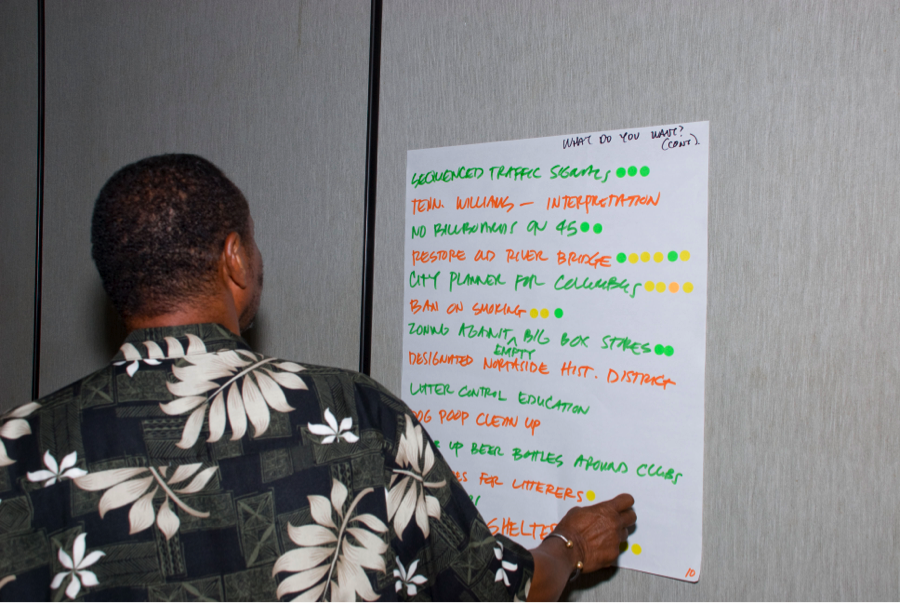 WHAT DO YOU WANT?
(CONT)
SEQUENCED TRAFFIC SIGNALS
TENN. WILLIAMS — INTERPRETATION
NO BILLBOARDS ON 45
RESTORE OLD RIVER BRIDGE
CITY PLANNER FOR COLUMBUS
BAN ON SMOKING
ZONING AGAINST BIG BOX STORES
EMPTY
DESIGNATED NORTHSIDE HIST. DISTRICT
LITTER CONTROL EDUCATION
DOG POOP CLEAN UP
UP BEER BOTTLES AROUND CLUBS
FOR LITTERERS
SHELTER
10